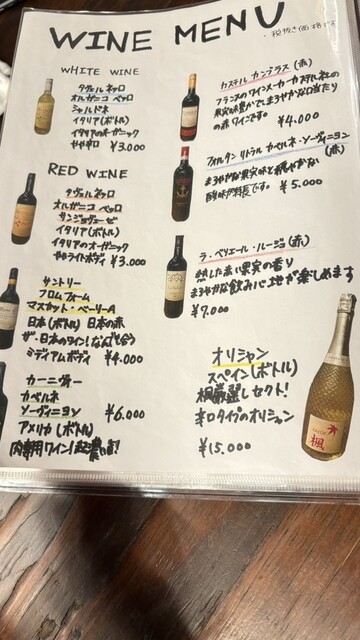 WINE MENU
・税抜き価格です
WHITE WINE
タヴェルネッロ
オルガニコ ペッロ
シャルドネ
イタリア(ボトル)
イタリアのオーガニック
やや辛口 ¥3.000
RED WINE
タヴェルネッロ
オルガニコ ペッロ
サンジョヴェーゼ
イタリア(ボトル)
イタリアのオーガニック
ややライトボディ ¥3.000
サントリー
フロムファーム
マスカット・ベーリーA
日本(ボトル) 日本の赤
ザ・日本のワイン!なんでも合う
ミディアムボディ ¥4.000
カーニヴォー
カベルネ
ソーヴィニヨン ¥6.000
アメリカ(ボトル)
肉専用ワイン!超濃厚!
カステル カンテラス(赤)
フランスのワインメーカーカステル社の
果実味豊かでまろやかな口当たり
の赤ワインです。 ¥4.000
フォルタン リトラル カベルネ・ソーヴィニヨン
(赤)
まろやかな果実味と穏やかな
酸味が特長です。 ¥5.000
ラ・ベリエール・ルージュ(赤)
熟した赤い果実の香り
まろやかな飲み心地が楽しめます
¥7.000
オリシャン
スペイン(ボトル)
楓厳選しセクト!
辛口タイプのオリシャン
¥15.000
楓